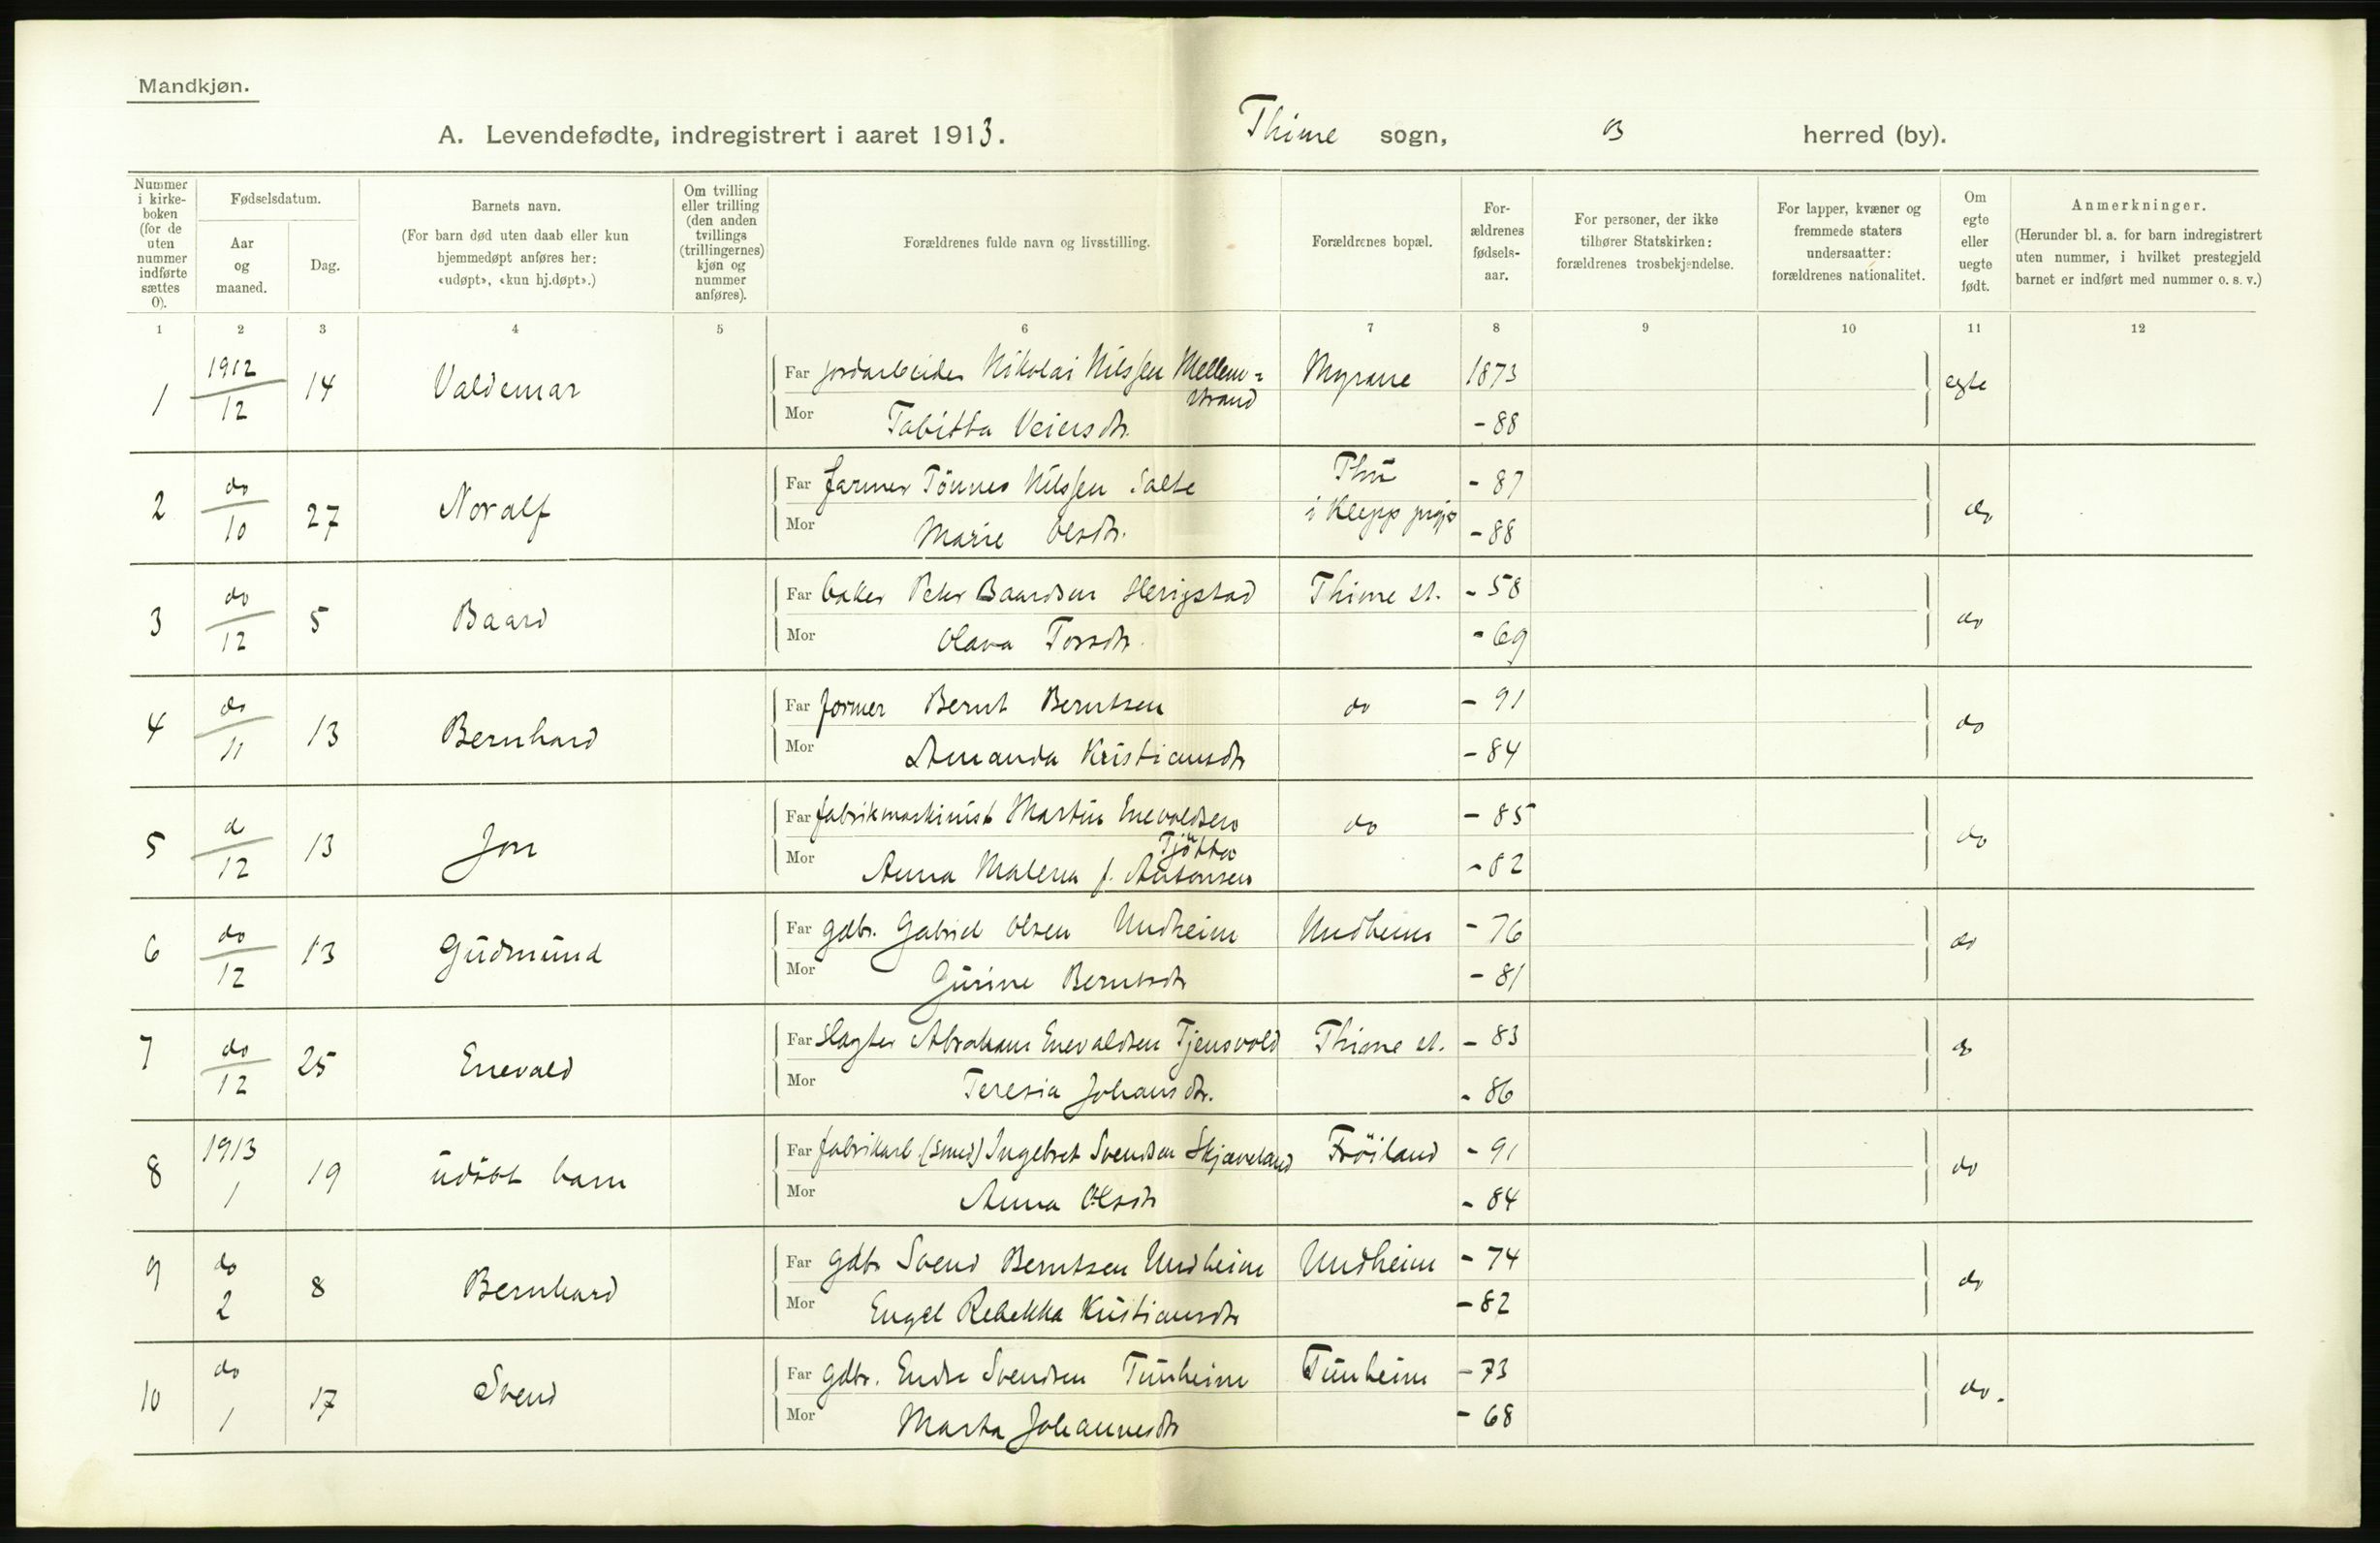 Mandkjøn.
A. Levendefødte, indregistrert i aaret 1913. Thime sogn, herred (by).
Nummer i kirkeboken (for de uten nummer indførte sættes 0).
Fødselsdatum.
Aar og maaned.
Dag.
Barnets navn.
(For barn død uten daab eller kun hjemmedøpt anføres her: «udøpt», «kun hj.døpt».)
Om tvilling eller trilling (den anden tvillings (trillingernes) kjøn og nummer anføres).
Forældrenes fulde navn og livsstilling.
Forældrenes bopæl.
Forældrenes fødselsaar.
For personer, der ikke tilhører Statskirken: forældrenes trosbekjendelse.
For lapper, kvæner og fremmede staters undersaatter: forældrenes nationalitet.
Om egte eller uegte født.
Anmerkninger.
(Herunder bl. a. for barn indregistrert uten nummer, i hvilket prestegjeld barnet er indført med nummer o. s. v.)
1 2 3 4 5 6 7 8 9 10 11 12
1 1912/12 14 Valdemar Far jordarbeider Nikolai Nilssen Mellem= strand Myrane 1873 egte
Mor Tabitta Veiersdtr. - 88
2 do/10 27 Noralf Far farmer Tönnes Nilssen Salte Thu - 87 do
i Klepp prgj.
Mor Marie Olsdtr. - 88
3 do/12 5 Baard Far baker Peter Baardsen Herigstad Thime st. - 58 do
Mor Olava Torsdtr. - 69
4 do/11 13 Bernhard Far former Bernt Berntsen do - 91 do
Mor Amanda Kristiansdtr - 84
5 d/12 13 Jon Far fabrikmaskinist Martin Enevoldsen Tjötta do - 85 do
Mor Anna Malena f. Antonsen - 82
6 do/12 13 Gudmund Far gdbr. Gabriel Olsen Undheim Undheim - 76 do
Mor Gurine Berntsdtr - 81
7 do/12 25 Enevald Far Slagter Abraham Enevaldsen Tjensvold Thime st. - 83 do
Mor Teresia Johansdtr. - 86
8 1913 1 19 udöbt barn Far fabrikarb. (Smed) Ingebret Svendsen Skjæveland Fröiland - 91 do
Mor Anna Olsdtr - 84
9 do 2 8 Bernhard Far gdbr Svend Berntsen Undheim Undheim - 74 do
Mor Engel Rebekka Kristiansdtr - 82
10 do 1 17 Svend Far gdbr. Endre Svendsen Tunheim Tunheim - 73 do.
Mor Marta Johannesdtr - 68